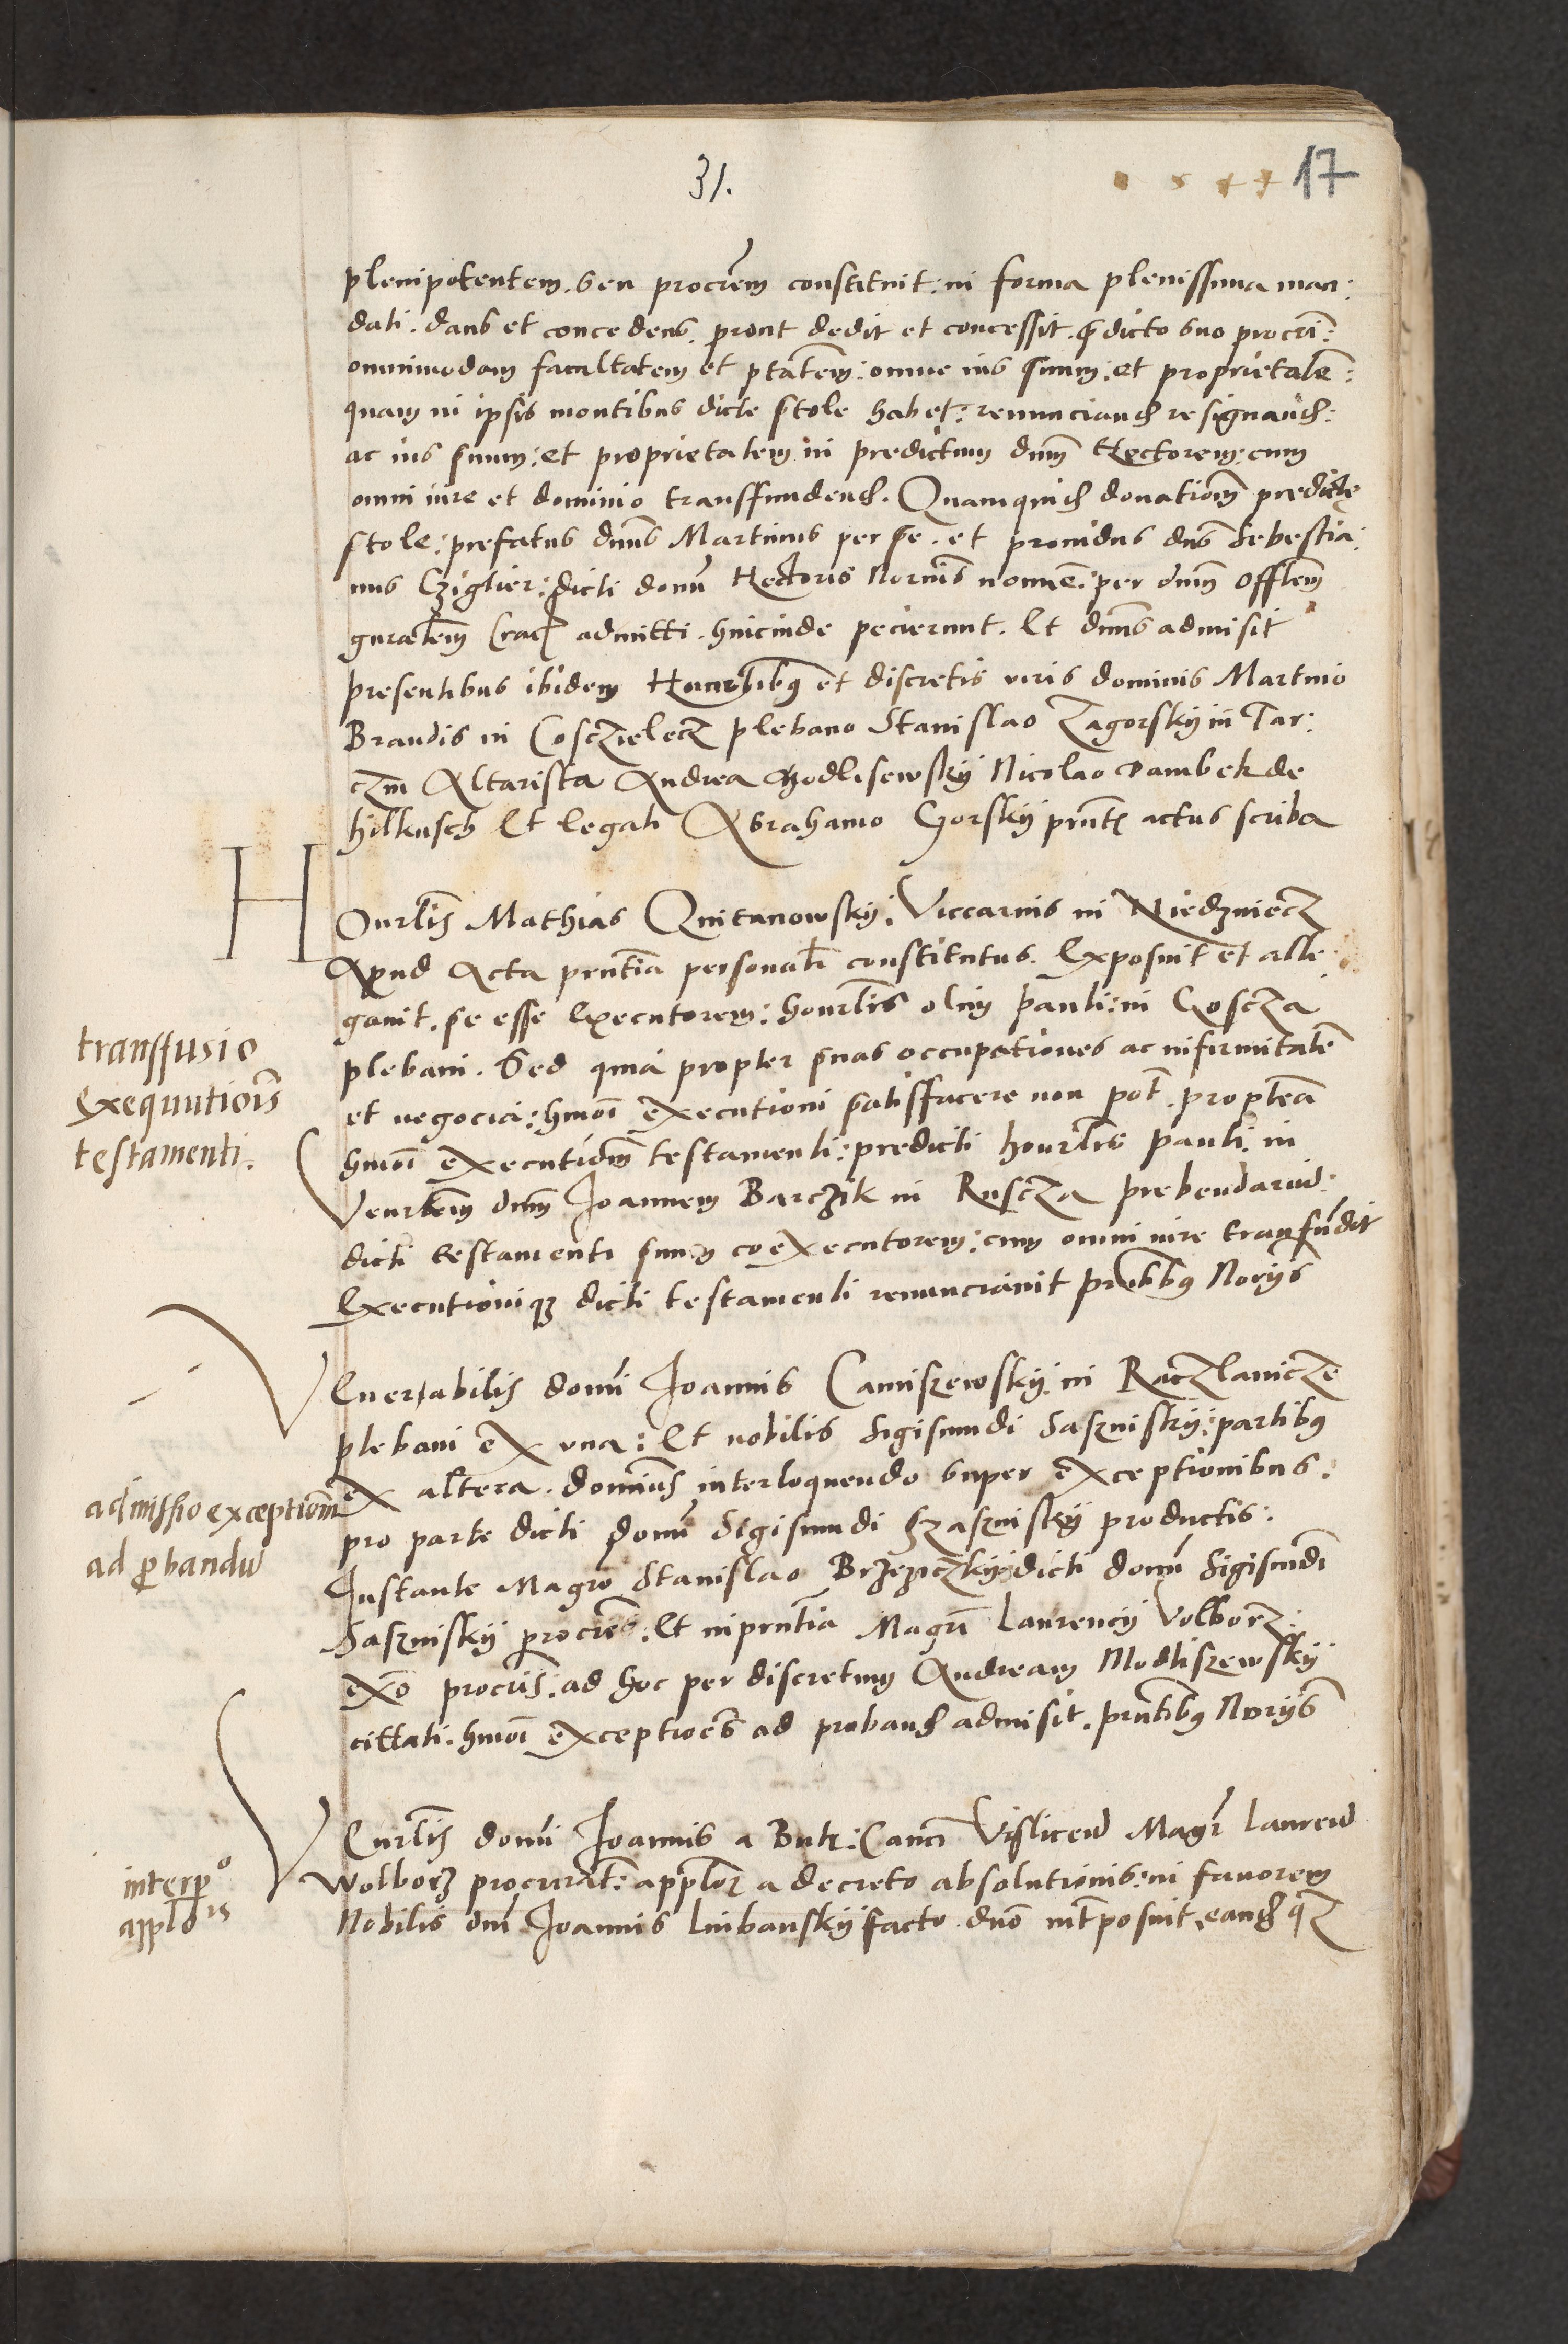 31.
17
plenipotentem. seu procrem constituit: in forma plenissima man:
dati. dans et concedens. prout dedit et concessit. predicto suo procri:
omnimodam facultatem et ptatem: omne ius suum: et proprietate:
quam in ipsis montibus dicte stole habet: renunciand resignand:
ac ius suum: et proprietatem in predictum dnm Rectorem: cum
omni iure et dominio transffundend. Quamquid donationem predicte
stole: prefatus dnus Martinus per se. et prouidus dns Sebestia:
nus Cziglier: dicti domi Rectoris nomine: per dnm Offlem
gnralem Crac admitti. hincinde pecierunt. Et dnus admisit
presentibus ibidem Honorlibus et discretis viris dominis Martino
Brandis in Cosczielecz plebano Stanislao Zagorsky in Tar:
czin Altarista Andrea Modlisewsky Nicolao Dambek de
hilkusch Et legali Abrahamo Gorsky pnt actus scriba
HOnrlis Mathias Quitanowsky: Viccarius in Niedzwiecz
Apud Acta pntia personali constitutus. Exposuit et alle:
gauit. se esse executorem: honrlis olim Pauli: in Gosczza
plebani. Sed quia propter suas occupationes ac infirmitate
et negocia: hmoi executioni satisffacere non pot. proptea
hmoi executionem testamenti: predicti honrlis Pauli: in
Venrlem dnm Joannem Barczik in Rusczza prebendariu:
dicti testamenti suum coexecutorem: cum omni iure transfudit
Executionique dicti testamenti renunciauit pntibus Norijs
transffusio
exequutiois
testamenti.
VEnerabilis domi Joannis Camiszewsky: in Raczlawicze
plebani ex vna: Et nobilis Sigismundi Sasznisky: partibus
ex altera. dominus interloquendo super exceptionibus.
pro parte dicti domi Sigismundi Szasznisky productis:
Instante Magro Stanislao Brzeziczky: dicti domi Sigismudi
Sasznisky procris: Et in pntia Magri Laurencij Volborz:
exo procris: ad hoc per discretum Andream Modliszewsky
cittati. hmoi exceptioes ad proband admisit. pntibus Norijs
admissio exceptionm
ad probandu
VEnrlis domi Joannis a Buk: Canci Visliceu Magr Laureu
Wolborz procurat: applor a decreto absolutionis: in fauorem
Nobilis dni Joannis Liubansky facto. dno intposuit eandque
interpo
applois